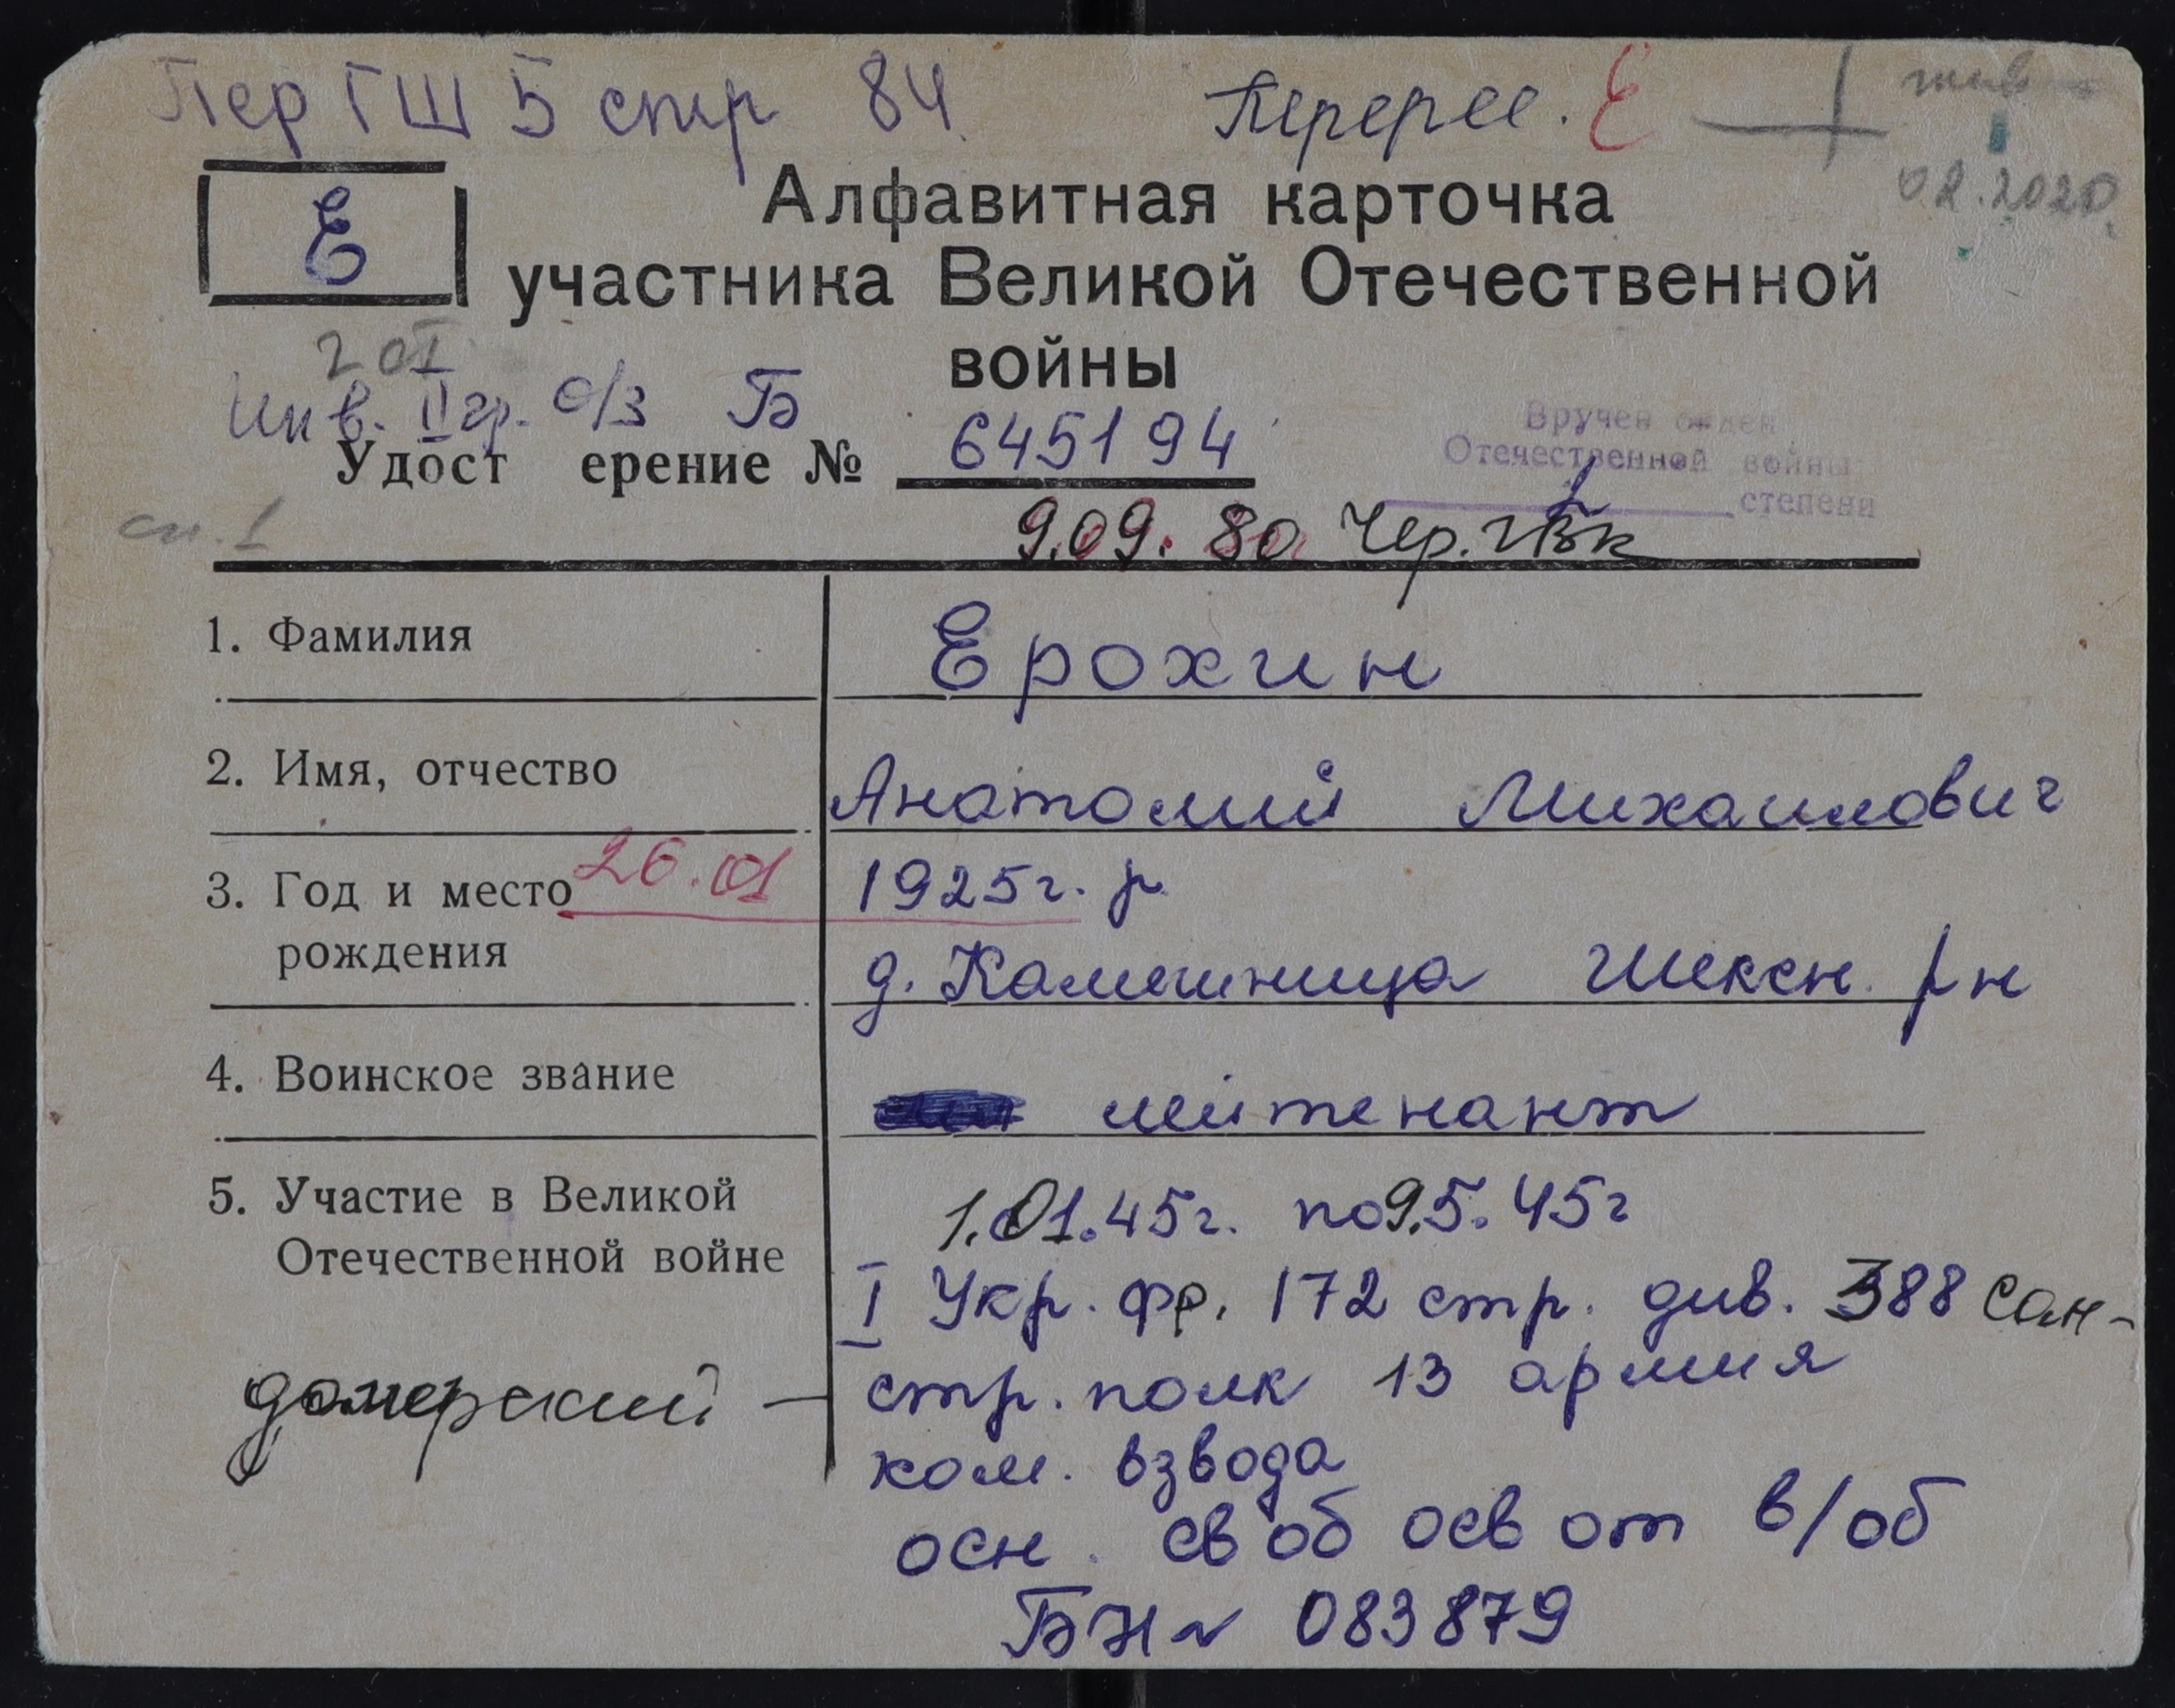 Пер ГШ 5 стр 84 Перерег. Е
02.2020
Е
Алфавитная карточка
участника Великой Отечественной
войны
Инв. II гр. о/з Б
Вручен орден
Отечественной войны
I степени
Удост ерение № 645194
сп. 1
9.09.80 Чер. ГВК
1. Фамилия Ерохин
2. Имя, отчество Анатолий Михаилович
3. Год и место 26.01 1925г. р
рождения д. Камешница Шексн. р/н
4. Воинское звание лейтенант
5. Участие в Великой 1.01.45г. по 9.5.45г
Отечественной войне I Укр. фр. 172 стр. див. 388 Сан-
домерский — стр. полк 13 армия
ком. взвода
осн. св об осв от в/об
БН № 083879